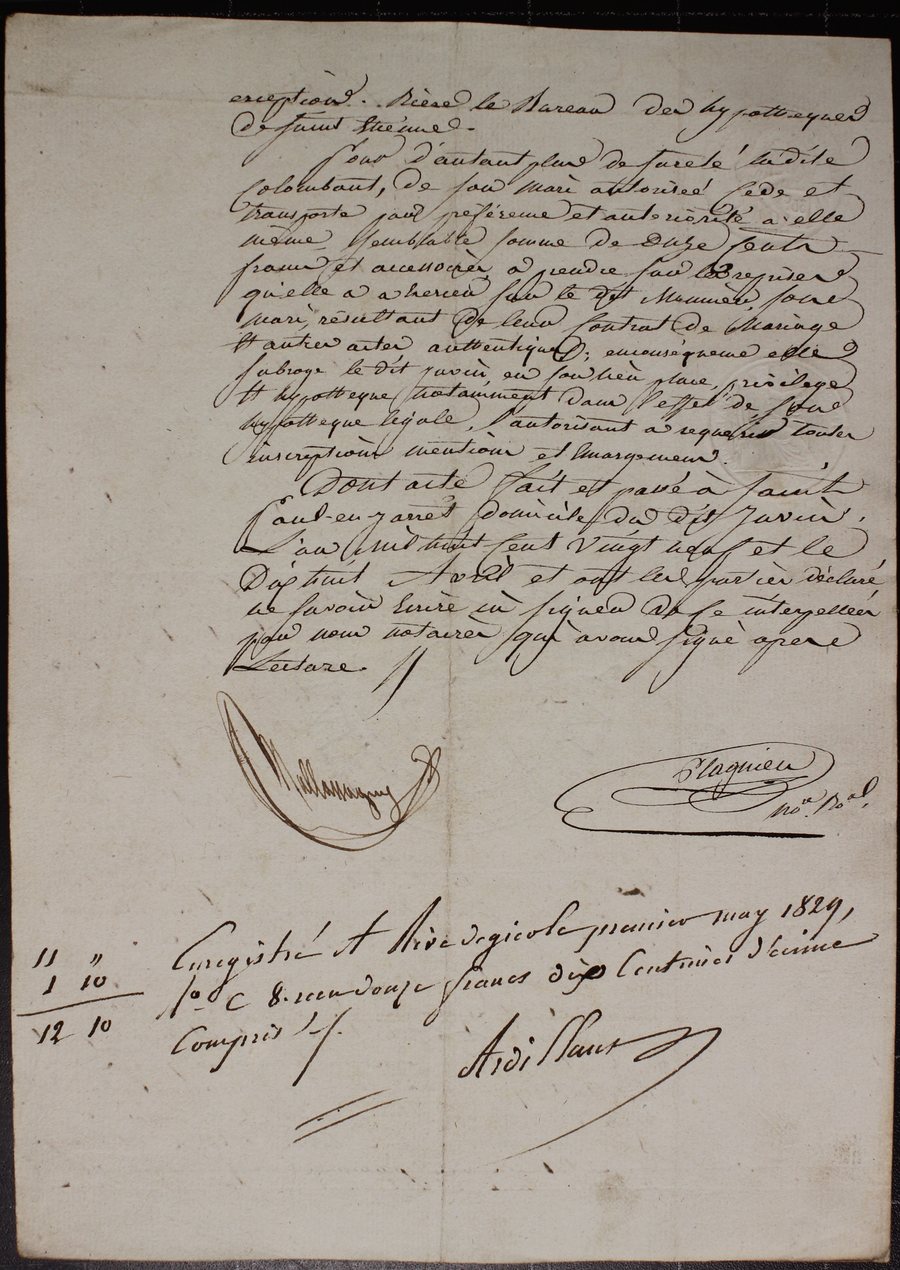 exception. Rière le Bureau des hypotheques
de saint Etienne.
Pour d'autant plus de sureté la dite
Colombant, de son mari autorisée Cède et
transporte par préférence et anteriorité a elle
même semblable somme de Onze Cents
francs et accessoires a prendre sur les reprises
qu'elle a a exercer sur le dit Meunier, son
mari, résultant de leur Contrat de Mariage
Et autres actes authentiques; en conséquence elle
subroge le dit Javin en son lieu place, privilege
Et hypotheque notamment dans l'effet de son
hypotheque légale, l'autorisant a requérir toutes
inscriptions mentions et Emargement.
Dont acte Fait et passé à Saint
Paul-en-jarret domicile du dit Javin,
L'an Mil huit Cent Vingt neuf et le
Dix huit Avril et ont les parties déclaré
ne savoir Ecrire ni signer de ce interpellées
par nous notaires qui avons signé après
Lecture. //
Mallassagny
Flagnieu
No.re Roal.
Enregistré At Rive degier le premier may 1829,
fo C 8. reçu douze francs dix Centimes décime
Compris /.
11 "
1 10
12 10
Ardillant